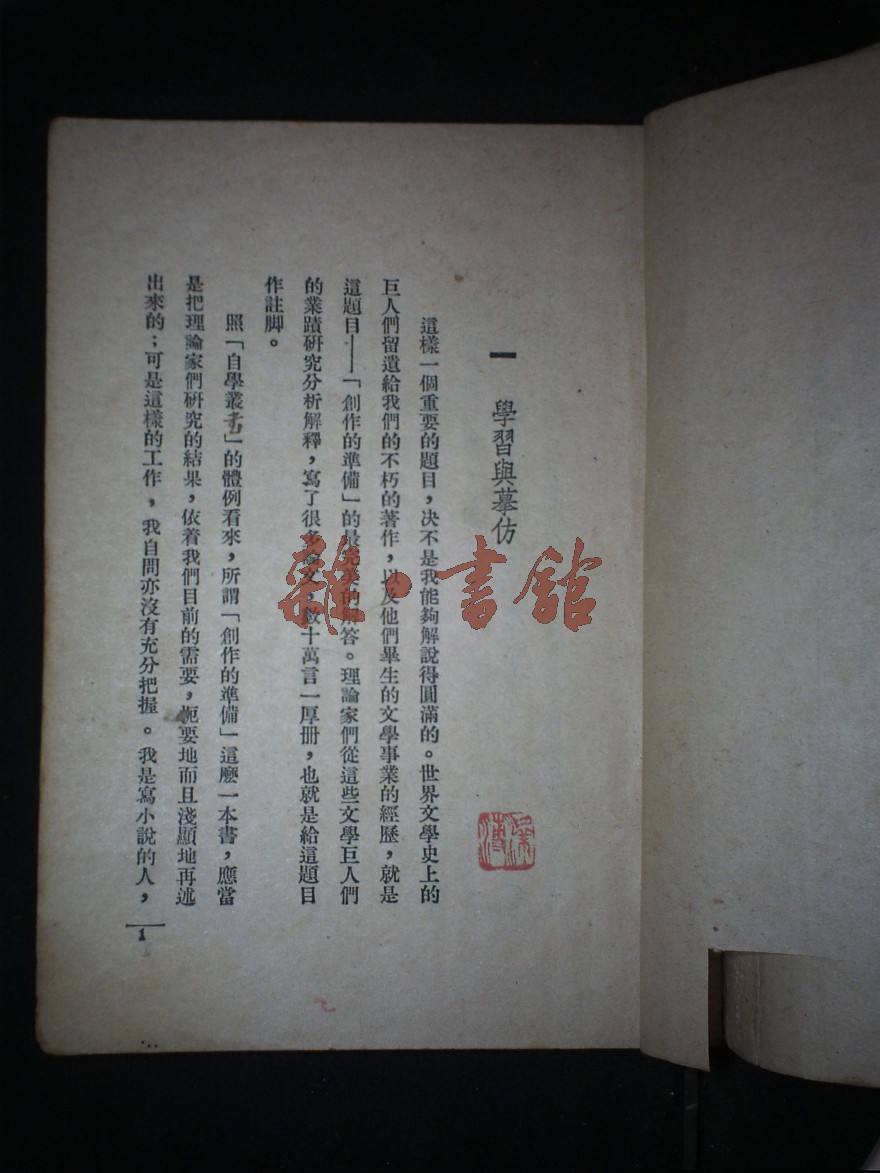 一 學習與摹仿
這樣一個重要的題目，决不是我能夠解說得圓滿的。世界文學史上的
巨人們留遺給我們的不朽的著作，以及他們畢生的文學事業的經歷，就是
這題目——「創作的準備」的最完美的解答。理論家們從這些文學巨人們
的業蹟研究分析解釋，寫了很多論文，數十萬言一厚册，也就是給這題目
作註脚。
照「自學叢書」的體例看來，所謂「創作的準備」這麽一本書，應當
是把理論家們研究的結果，依着我們目前的需要，扼要地而且淺顯地再述
出來的；可是這樣的工作，我自問亦沒有充分把握。我是寫小說的人，
1
雜·書館